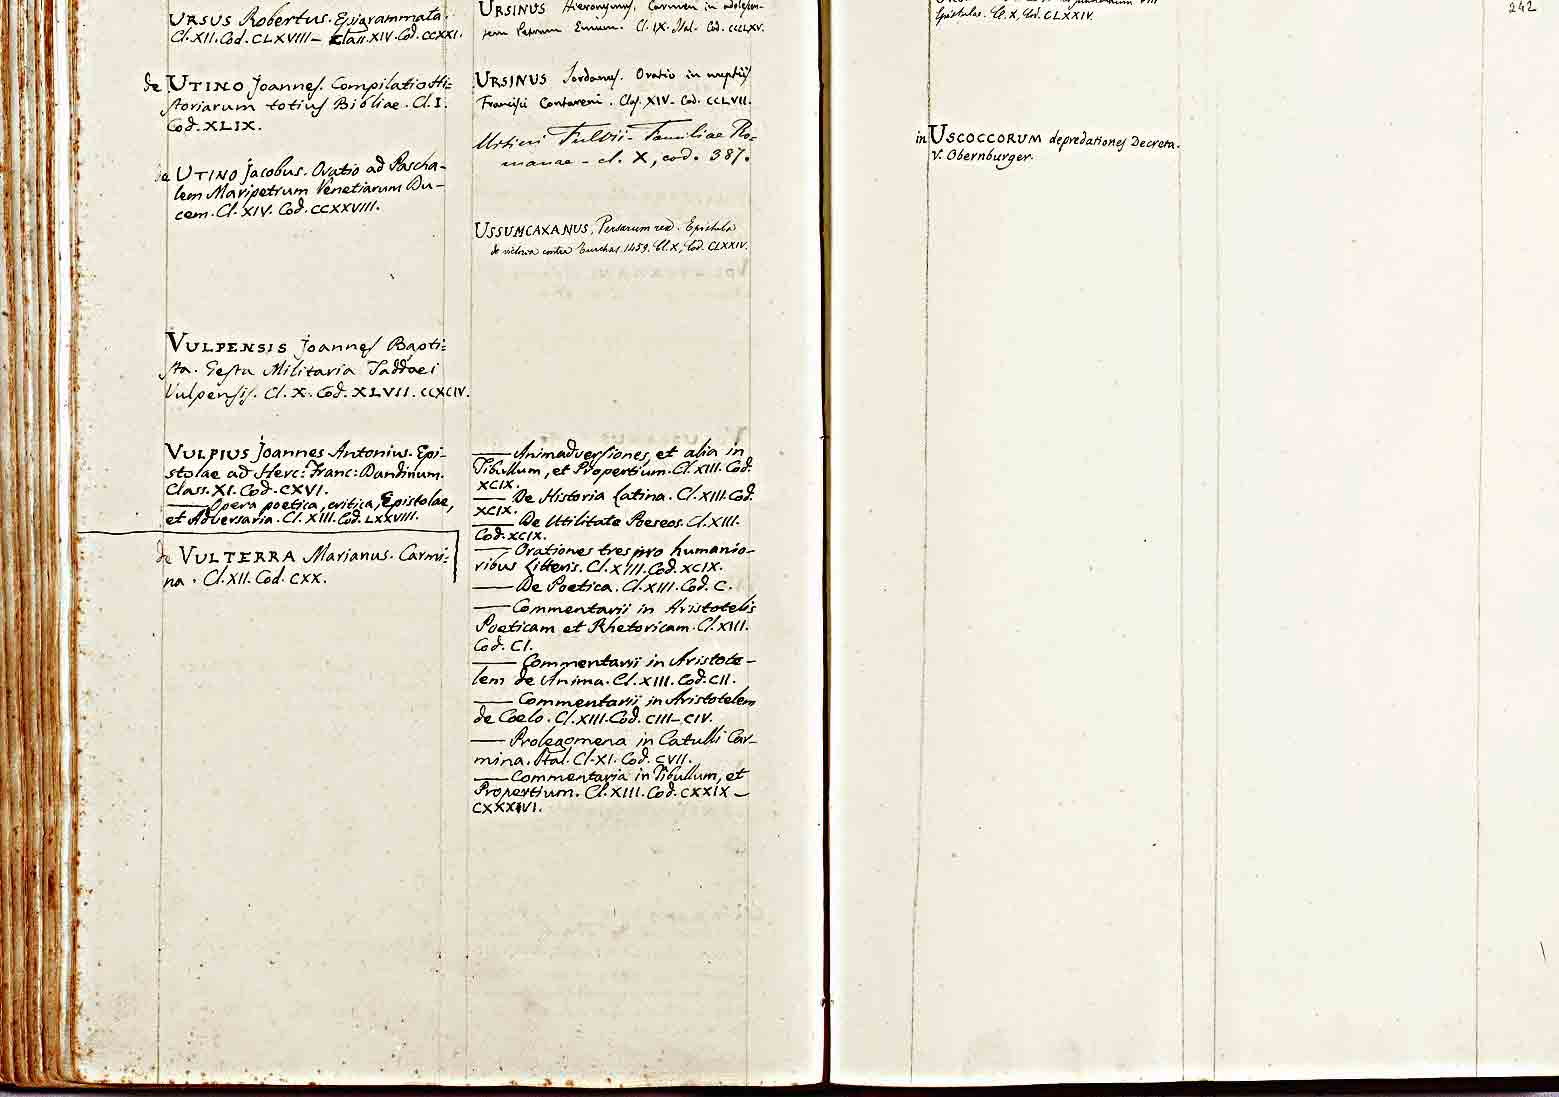 URSUS Robertus. Epigrammata.
Cl. XII. Cod. CLXVIII – Class. XIV. Cod. CCXXI.
de UTINO Joannes. Compilatio Hi=
storiarum totius Bibliae. Cl. I.
Cod. XLIX.
de UTINO Jacobus. Oratio ad Pascha-
lem Maripetrum Venetiarum Du-
cem. Cl. XIV. Cod. CCXXVIII.
VULPENSIS Joannes Bapti=
sta. Gesta Militaria Taddaei
Vulpensis. Cl. X. Cod. XLVII. CCXCIV.
VULPIUS Joannes Antonius. Epi-
stolae ad Herc: Franc: Dandinum.
Class. XI. Cod. CXVI.
—— Opera poetica, critica, Epistolae,
et Adversaria. Cl. XIII. Cod. LXXVIII.
de VULTERRA Marianus. Carmi=
na. Cl. XII. Cod. CXX.
URSINUS Hieronymus. Carmen in adolescen-
tem Petrum. Cl. IX. Ital. Cod. CCCLXV.
URSINUS Jordanus. Oratio in nuptiis
Francisci Contareni. Clas. XIV. Cod. CCLVII.
Ursini Fulvii – Familiae Ro-
manae – cl. X, cod. 387.
USSUMCAXANUS, Persarum rex. Epistula
de victoria contra Turchas 1459. Cl. X, Cod. CLXXIV.
—— Animadversiones, et alia in
Tibullum, et Propertium. Cl. XIII. Cod.
XCIX.
—— De Historia Latina. Cl. XIII. Cod.
XCIX.
—— De Utilitate Poeseos. Cl. XIII.
Cod. XCIX.
—— Orationes tres pro humanio-
ribus Litteris. Cl. XIII. Cod. XCIX.
—— De Poetica. Cl. XIII. Cod. C.
—— Commentarii in Aristotelis
Poeticam et Rhetoricam. Cl. XIII.
Cod. CI.
—— Commentarii in Aristote-
lem de Anima. Cl. XIII. Cod. CII.
—— Commentarii in Aristotelem
de Coelo. Cl. XIII. Cod. CIII – CIV.
—— Prolegomena in Catulli Car-
mina. Ital. Cl. XI. Cod. CVII.
—— Commentaria in Tibullum, et
Propertium. Cl. XIII. Cod. CXXIX –
CXXXIVI.
242
Epistulas. Cl. X, Cod. CLXXIV.
in USCOCCORUM depredationes Decreta.
V. Obernburger.